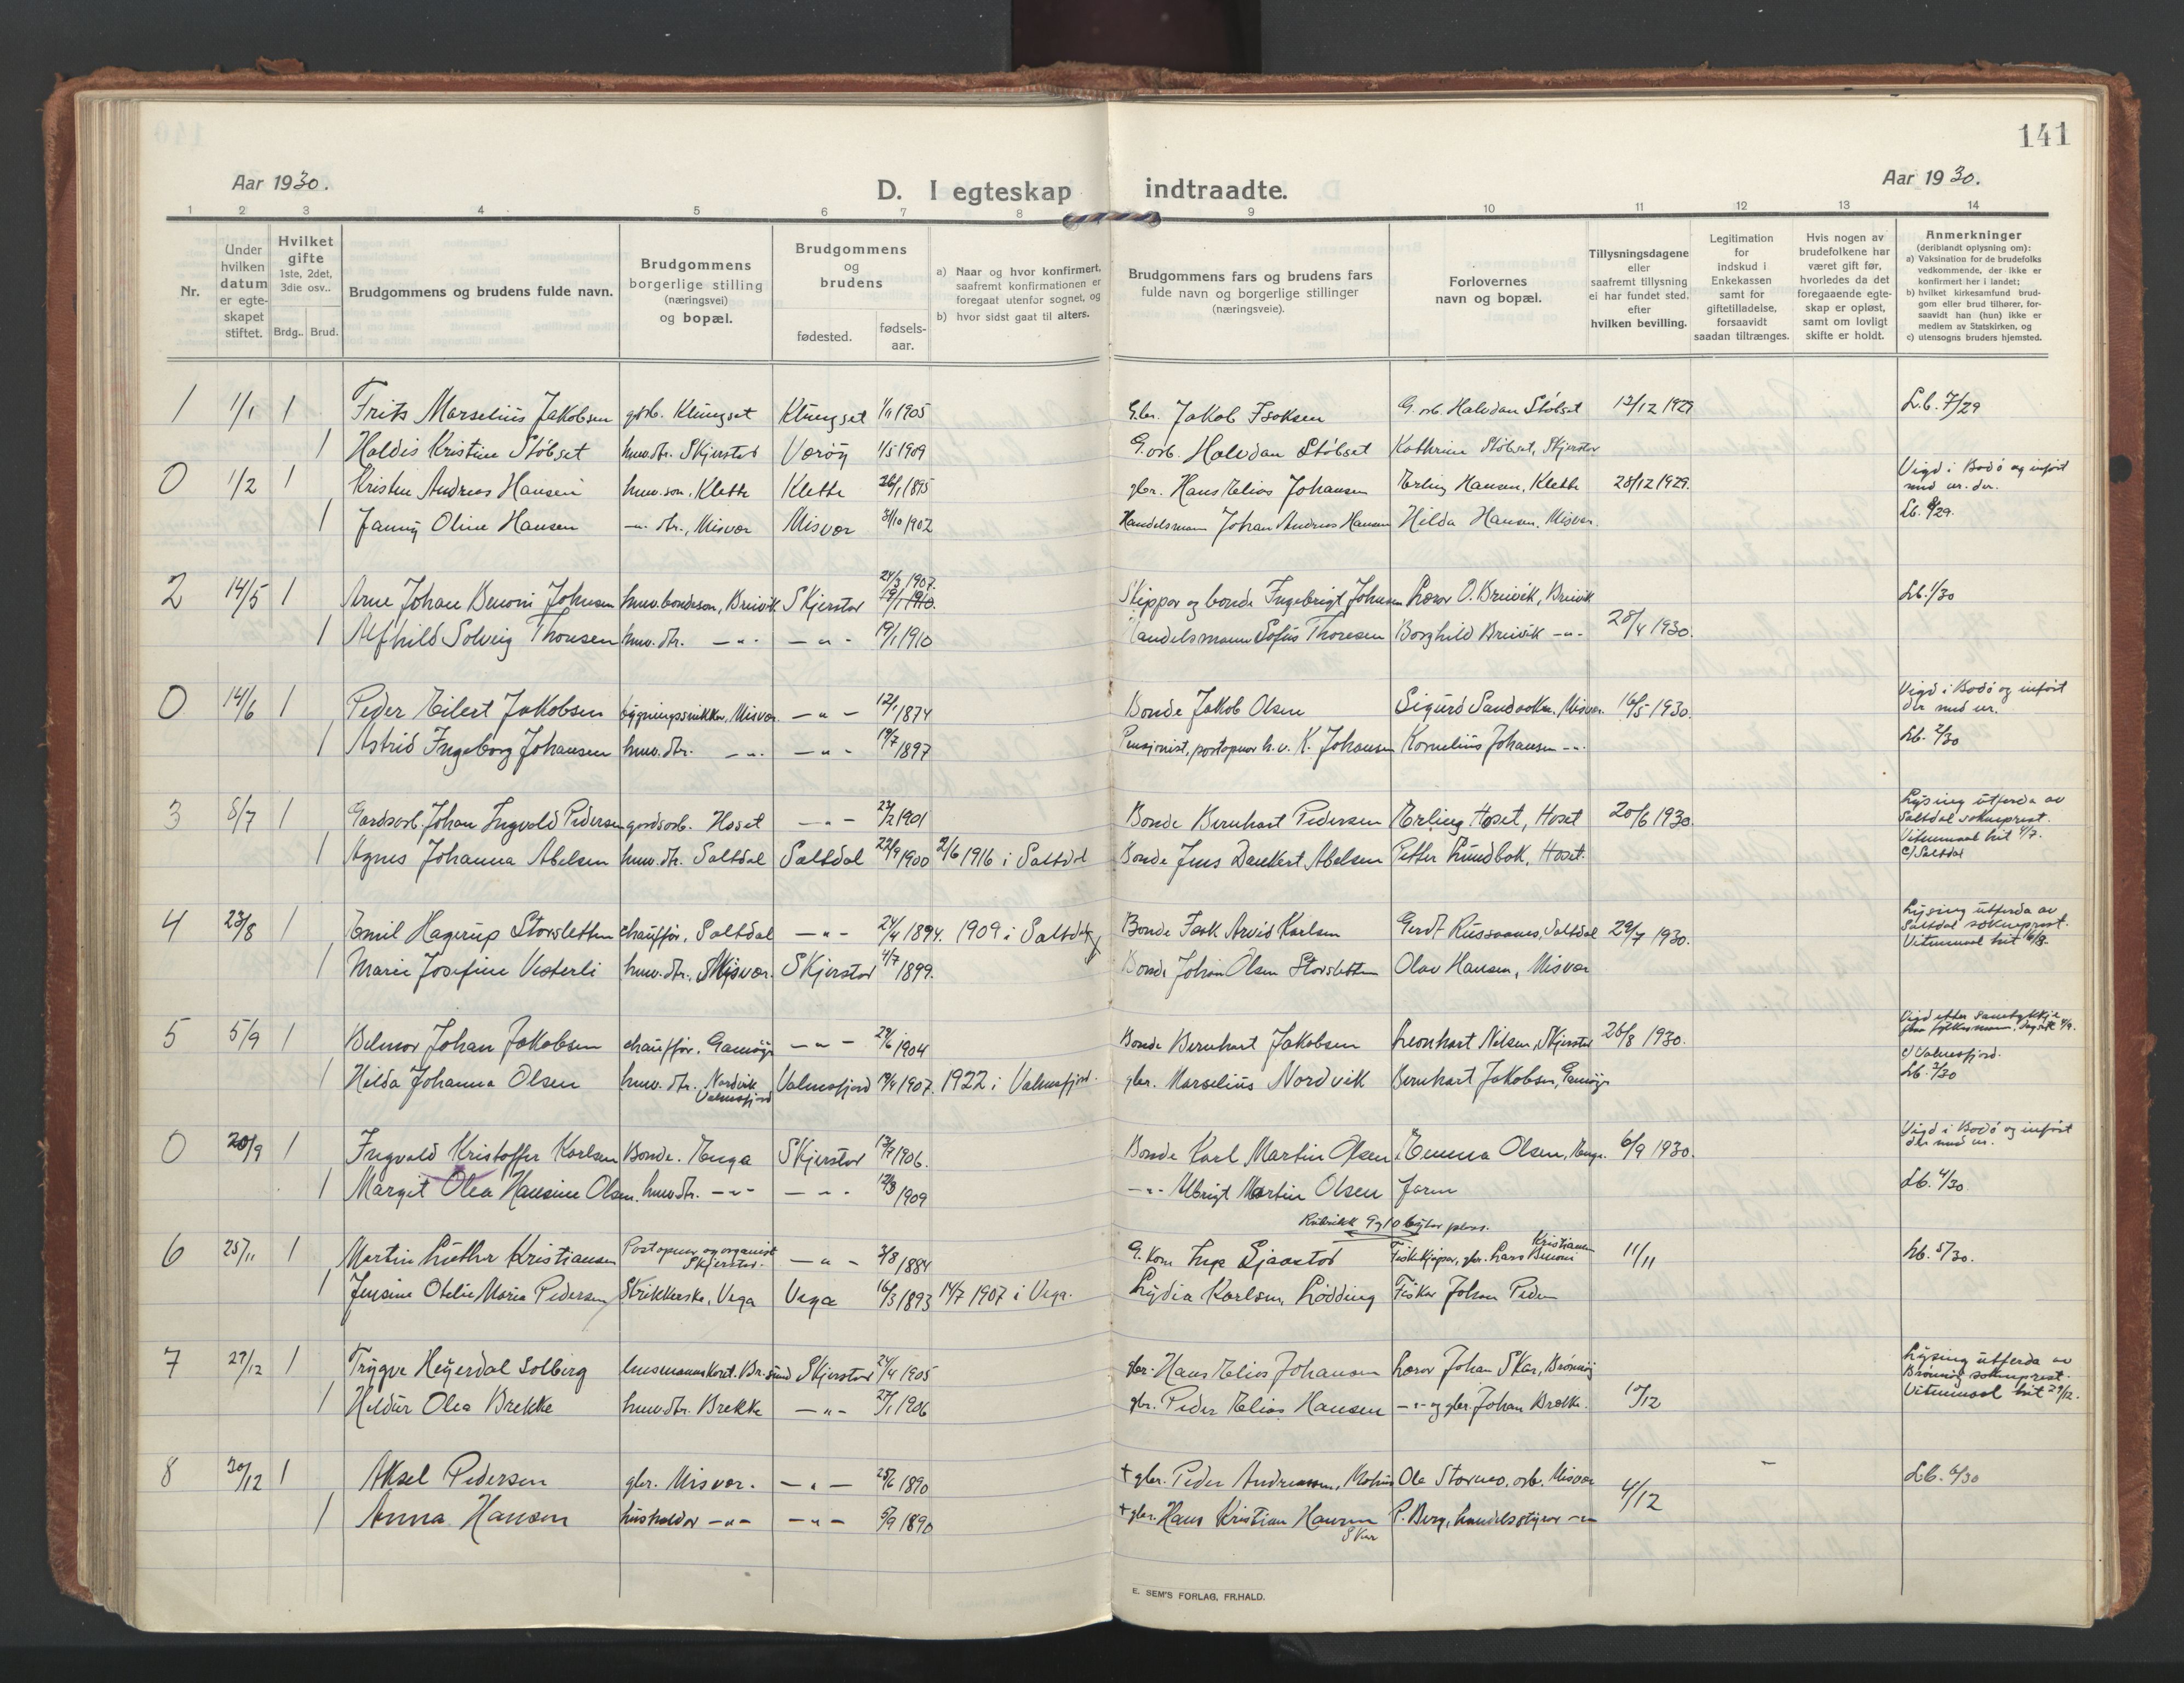 141
Aar 1930.
D. I egteskap indtraadte.
Aar 1930.
1 2 3 4 5 6 7 8 9 10 11 12 13 14
Nr.
Under hvilken datum er egte-skapet stiftet.
Hvilket gifte 1ste, 2det, 3die osv..
Brdg.. Brud.
Brudgommens og brudens fulde navn.
Brudgommens borgerlige stilling (næringsvei) og bopæl.
Brudgommens og brudens
fødested.
fødsels-aar.
a) Naar og hvor konfirmert, saafremt konfirmationen er foregaat utenfor sognet, og
b) hvor sidst gaat til alters.
Brudgommens fars og brudens fars fulde navn og borgerlige stillinger (næringsveie).
Forlovernes navn og bopæl.
Tillysningsdagene eller saafremt tillysning ei har fundet sted. efter hvilken bevilling.
Legitimation for indskud i Enkekassen samt for giftetilladelse, forsaavidt saadan tiltrænges.
Hvis nogen av brudefolkene har været gift før, hvorledes da det foregaaende egte-skap er opløst, samt om lovligt skifte er holdt.
Anmerkninger (deriblandt oplysning om):
a) Vaksination for de brudefolks vedkommende, der ikke er konfirmert her i landet;
b) hvilket kirkesamfund brud-gom eller brud tilhører, for-saavidt han (hun) ikke er medlem av Statskirken, og
c) utensogns bruders hjemsted.
1 1/1 1 Frits Marselius Jakobsen Klungset Klungset 1905 Gbr. Jakob Isaksen G. arb. Halvdan Støbset 12/12 1929 Lb. 7/29
1 Haldis Kristine Støbset huv. dtr. Skjerstad Værøy 1/5 1909 G. arb. Halvdan Støbset Kathrine Støbset, Skjerstad
0 1/2 1 Kristen Andreas Hansen huv. son, Klette Klette 26/1 1895 gbr. Hans Elias Johansen Erling Hansen, Klette 28/12 1929. Vigd i Bodø og inført
1 Fanny Oline Hansen -"- dtr., Misvær Misvær 31/10 1902 Handelsmann Johan Andreas Hansen Hilda Hansen, Misvær Lb. 8/29.
2 14/5 1 Arne Johan Benoni Johnsen huv. bondeson, Breivik Skjerstad 24/3 1907. Skipper og bonde Ingebrigt Johnsen Lærer O. Breivik, Breivik Lb. 1/30
1 Alfhild Solveig Thoresen huv. dtr. -"- -"- 19/1 1910 Handelsmann Sofus Thoresen Borghild Breivik -"- 28/4 1930.
0 14/6 1 Peder Eilert Jakobsen bygningssnikker, Misvær -"- 12/1 1874 Bonde Jakob Olsen Sigurd Misvær 16/5 1930. Vigd i Bodø og inført der med nr.
1 Astrid Ingeborg Johansen huv. dtr. -"- -"- 19/7 1897 Pensjonist, postopnar h.v. K. Johansen Kornelius Johansen -"- Lb. 2/30
3 5/7 1 Gardsarb. Johan Ingvald Pedersen gardsarb. Hoset -"- 23/2 1901 Bonde Bernhart Pedersen Erling Hoset, Hoset 20/6 1930. Lysing utferda av Saltdal sokneprest.
Vitnemaal hit 4/7.
1 Agnes Johanna Abelsen huv. dtr. Saltdal Saltdal 22/9 1900 2/6 1916 i Saltdal Bonde Jens Dankert Abelsen Petter Lundbak, Hoset. c) Saltdal
4 23/8 1 Emil Hagerup Storsletten chauffør, Saltdal -"- 24/4 1894. 1909 i Saltdal Bonde Arvid Karlsen Gerdt Russaanes, Saltdal 29/7 1930. Lysing utferda av Saltdal sokneprest.
Vitnemaal hit 16/8.
1 Marie Josefine Vesterli huv. dtr. Misvær. Skjerstad 4/7 1899. Bonde Johan Olsen Storsletten Olav Hansen, Misvær
5 5/9 1 Belmor Johan Jakobsen chauffør, Gamøy -"- 29/6 1904 Bonde Bernhart Jakobsen Leonhart Nilsen, Skjerstad 26/8 1930. Vigd etter samtykkje
1 Hilda Johanna Olsen huv. dtr. Nordvik Valnesfjord Valnesfjord 19/4 1907. 1922 i Valnesfjord. gbr. Marselius Nordvik Bernhart Jakobsen, Gamøy c) Valnesfjord.
Lb. 3/30
0 20/9 1 Ingvald Kristoffer Karlsen Bonde. Enga Skjerstad 13/9 1906. Bonde Karl Martin Olsen Emma Olsen, Enga. 6/9 1930. Vigd i Bodø og inført der med nr.
1 Margit Olea Hansine Olsen huv. dtr. -"- -"- 12/3 1909 -"- Albrigt Martin Olsen Farm Lb. 4/30
Rubrikk 9 og 10 bytar plass.
6 25/11 1 Martin Luther Kristiansen Postopnar og organist Skjerstad. -"- 3/8 1884 G. Kom. Inge Sjaastad Fiskekjøper, gbr. Lars Benoni Kristiansen 11/11 Lb. 5/30.
1 Jensine Otelie Maria Pedersen Strikkerske, Vega Vega 16/3 1893 14/7 1907 i Vega. Lydia Karlsen, Lødding Fisker Johan Peder
7 27/12 1 Trygve Heyerdal Solberg lensmannskont. Br.sund Skjerstad 24/4 1905 gbr. Hans Elias Johansen Lærer Johan Skar, Brønnøy Lysing utferda av Brønnøy sokneprest.
1 Heldur Olea Brekke huv. dtr. Brekke -"- 27/1 1906 gbr. Peder Elias Hansen -"- og gbr. Johan Brekke. 10/12 Vitnemaal hit 29/12.
8 30/12 1 Aksel Pedersen gbr. Misvær. -"- 25/6 1890 + gbr. Peder Andreassen, Ola Storness, arb. Misvær 4/12 - Lb. 6/30
1 Anna Hansen husholder -"- -"- 5/9 1890 + gbr. Hans Kristian Hansen Skar P. Berg, handelsstyrer -"-
E. SEM'S FORLAG, FR.HALD.